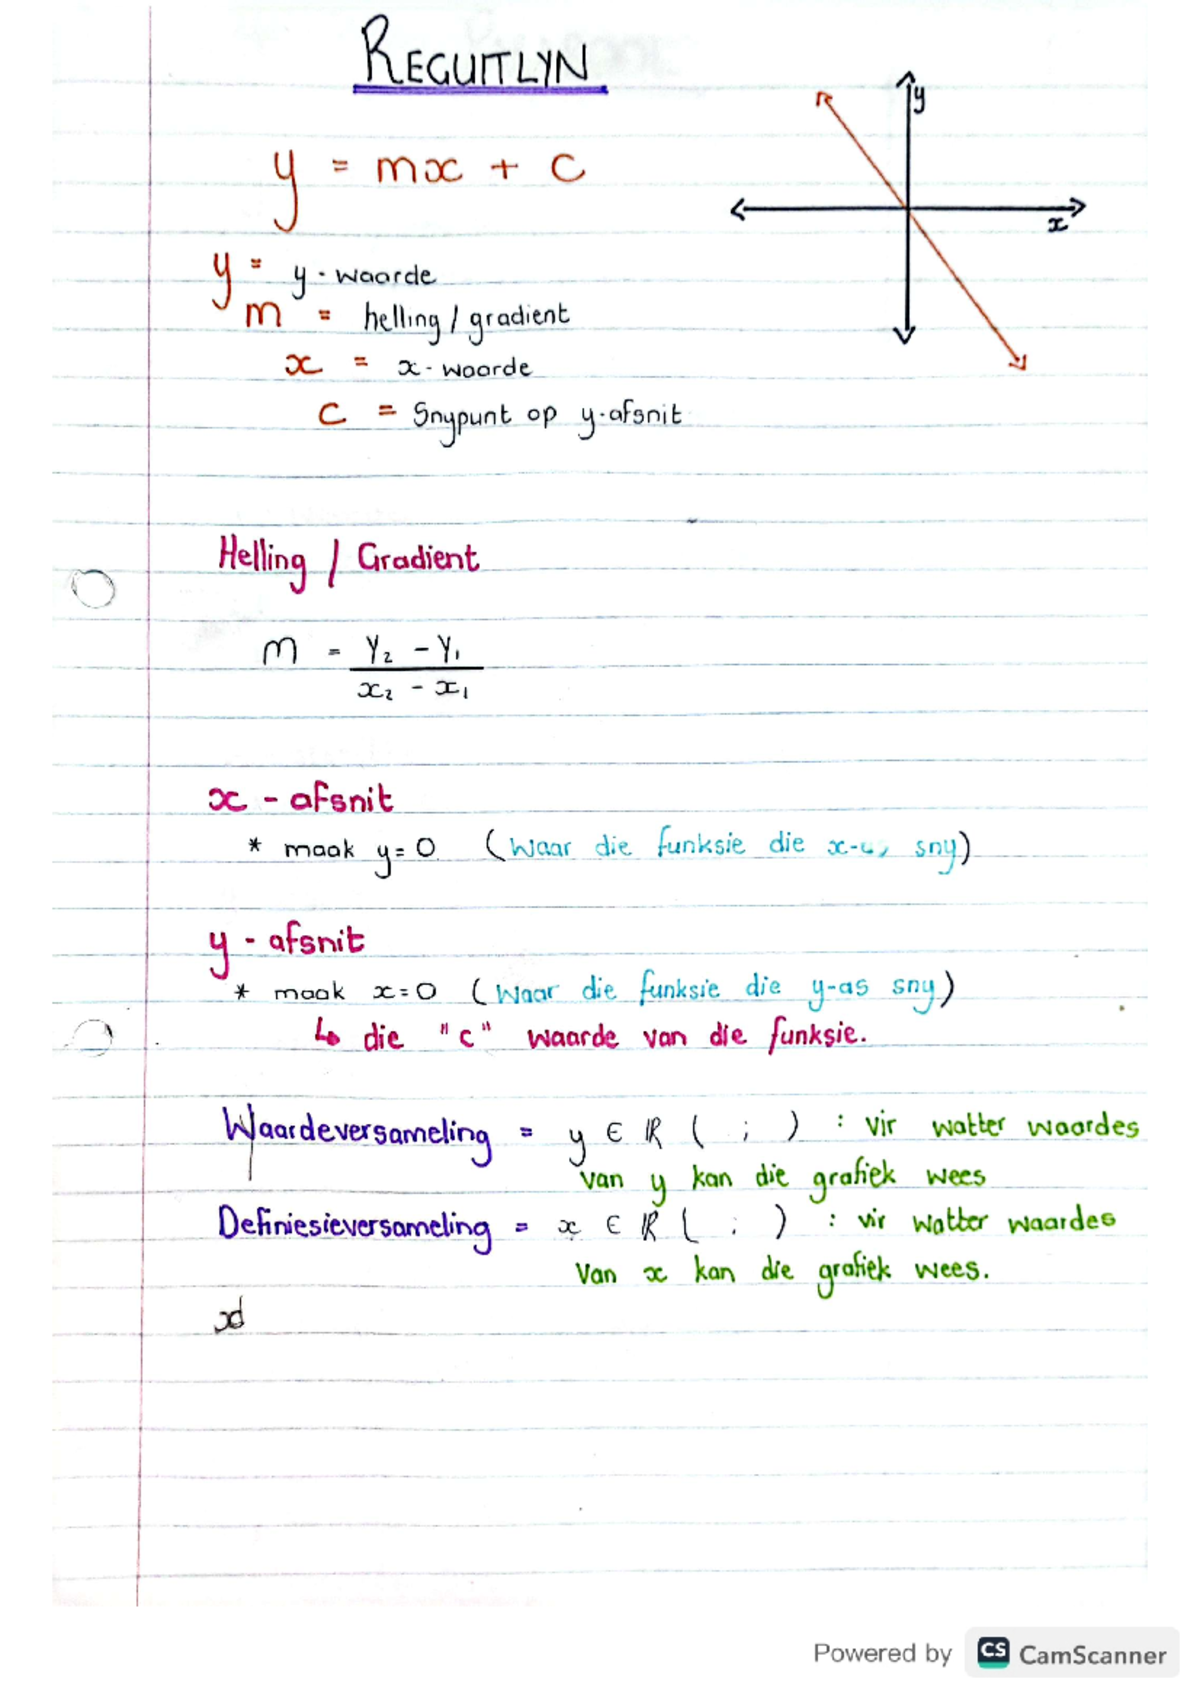 REGUITLYN
y
y = mx + c
x
y = y-waarde
m = helling / gradient
x = x-waarde
c = Snypunt op y-afsnit
Helling / Gradient
m = Y₂ - Y₁
x₂ - x₁
x - afsnit
* maak y=0 (Waar die funksie die sny)
y - afsnit
* maak x=0 (Waar die funksie die y-as sny)
↳ die "c" waarde van die funksie.
Waardeversameling = y ∈ ℝ ( ; ) : vir watter waardes
van y kan die grafiek wees
Definiesieversameling = x ∈ ℝ ( ; ) : vir watter waardes
Van x kan die grafiek wees.
Powered by CS CamScanner